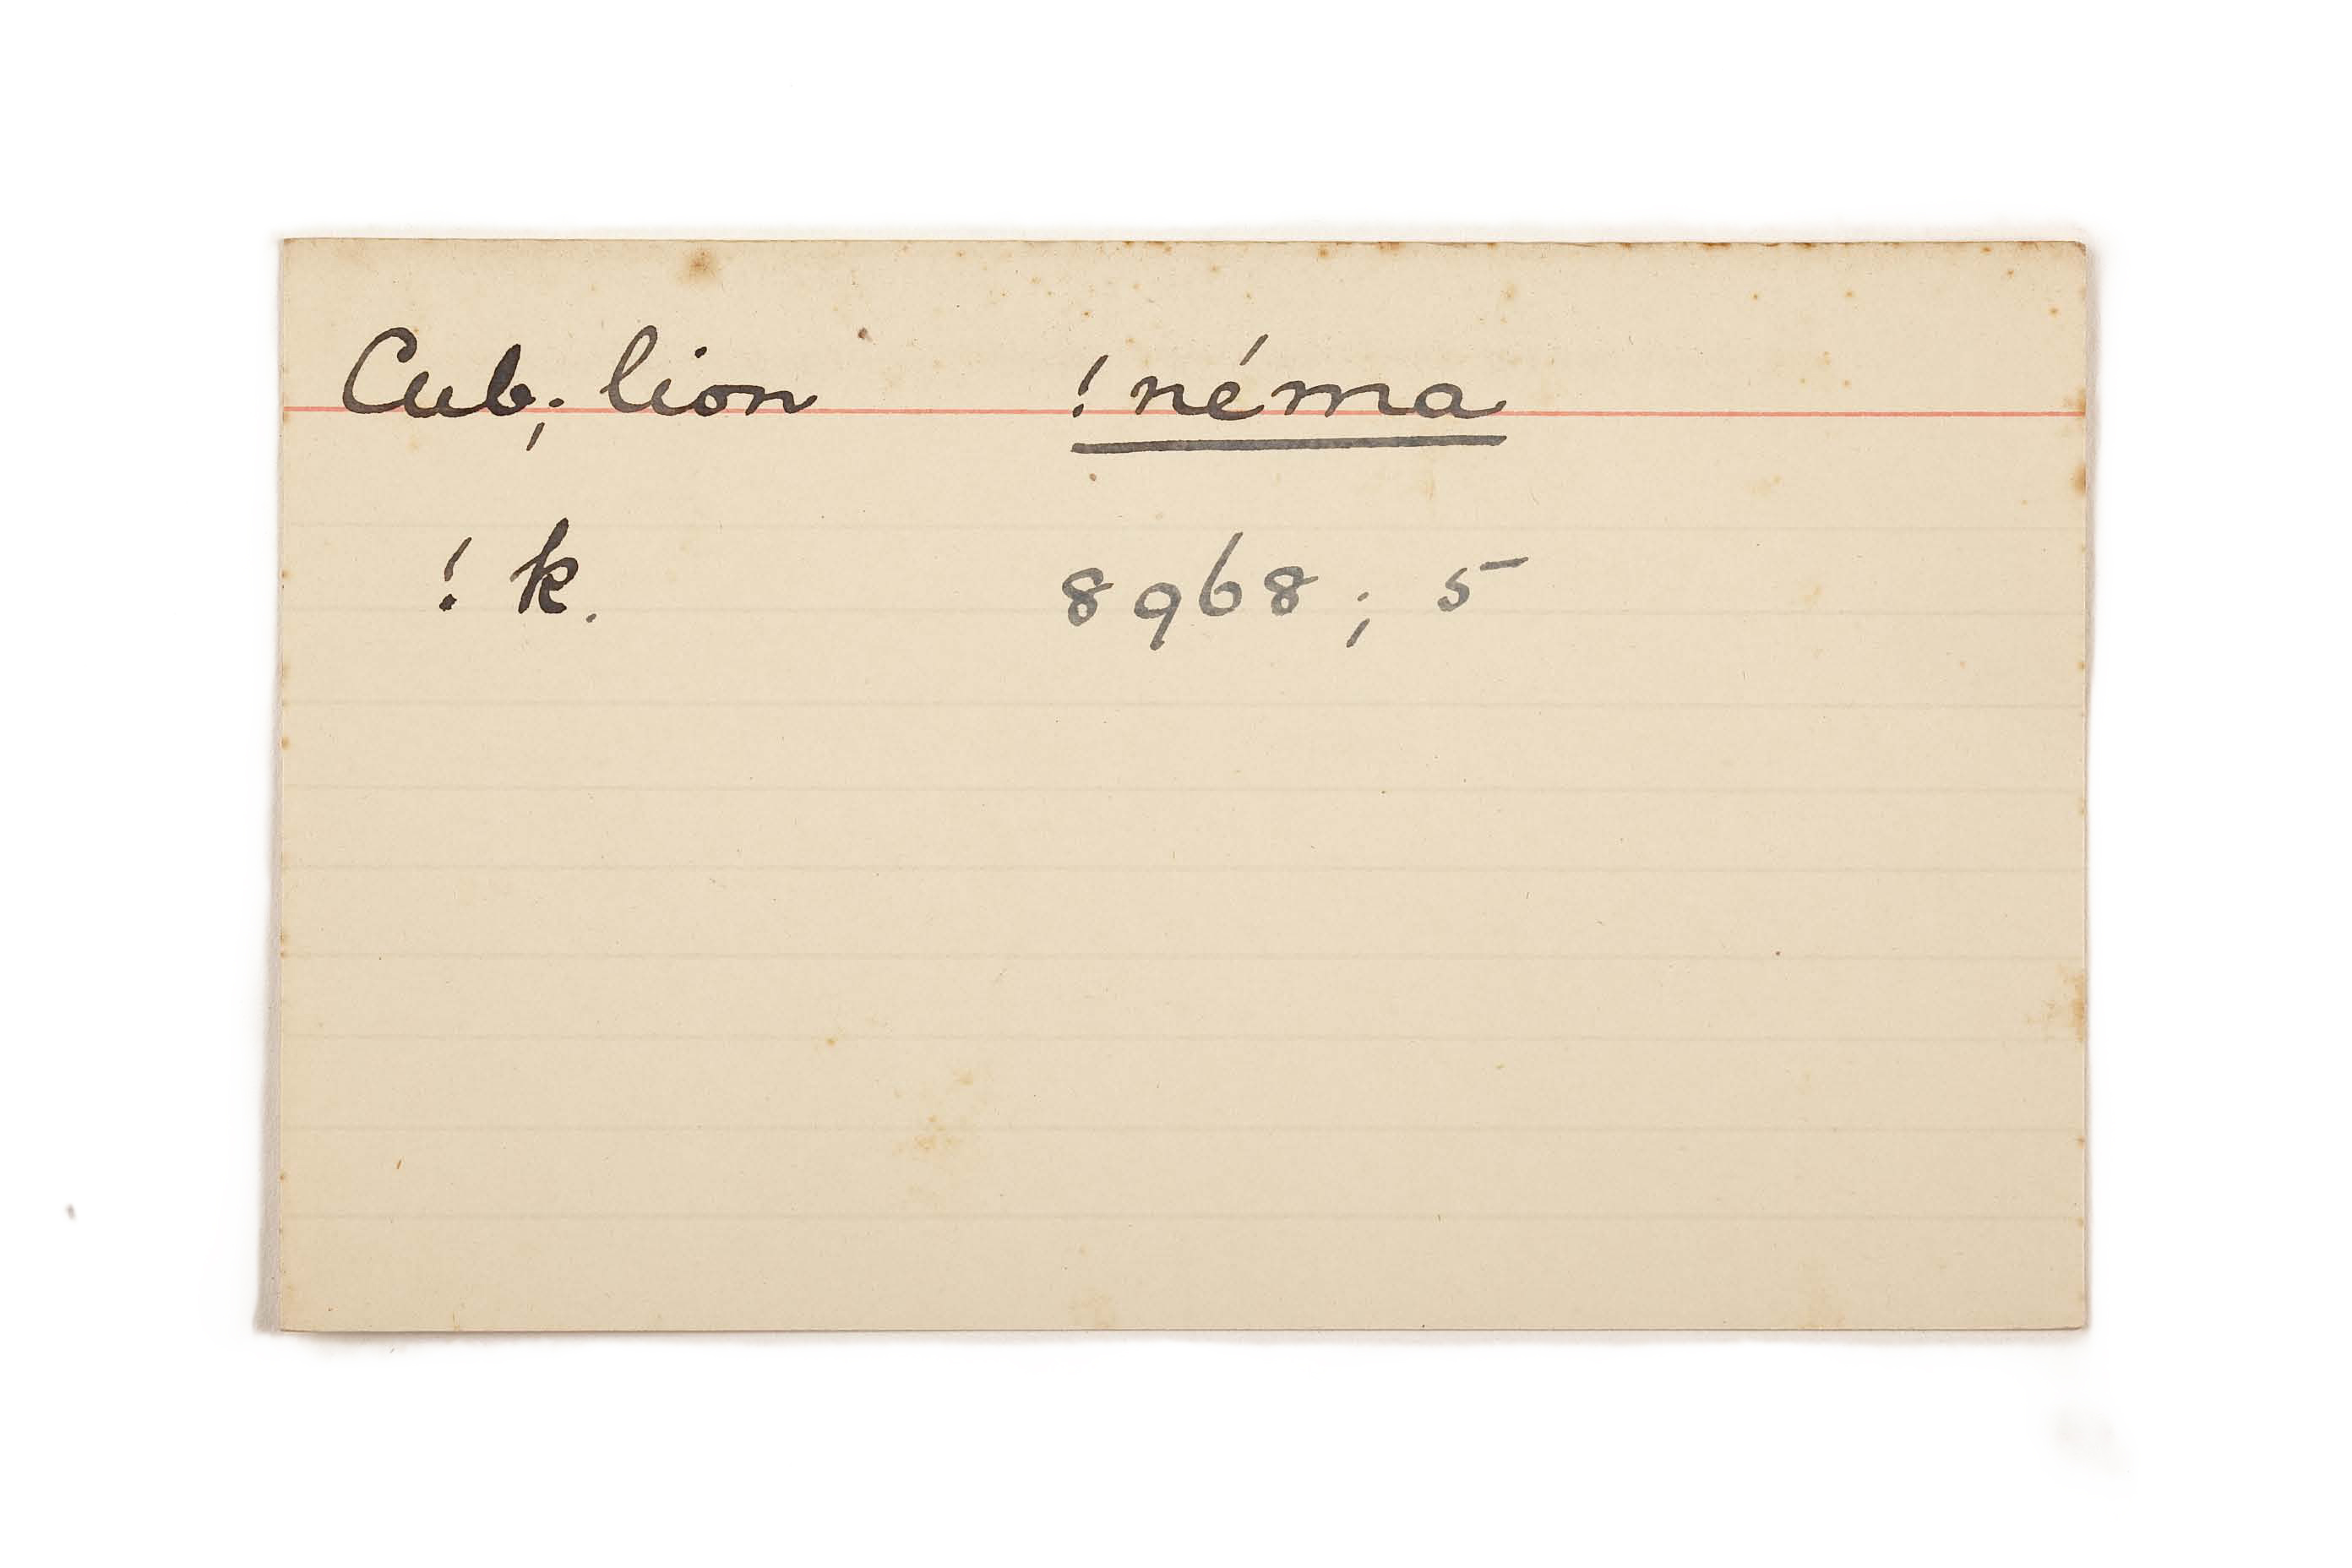 Cub; lion !néma
! k. 8968; 5